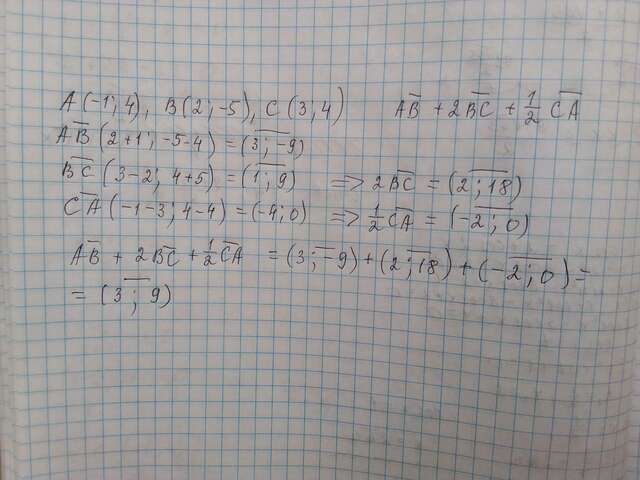 A(-1; 4), B(2; -5), C(3; 4) AB + 2BC + 1/2 CA
AB(2+1; -5-4) = (3; -9)
BC(3-2; 4+5) = (1; 9) => 2BC = (2; 18)
CA(-1-3; 4-4) = (-4; 0) => 1/2 CA = (-2; 0)
AB + 2BC + 1/2 CA = (3; -9) + (2; 18) + (-2; 0) =
= (3; 9)